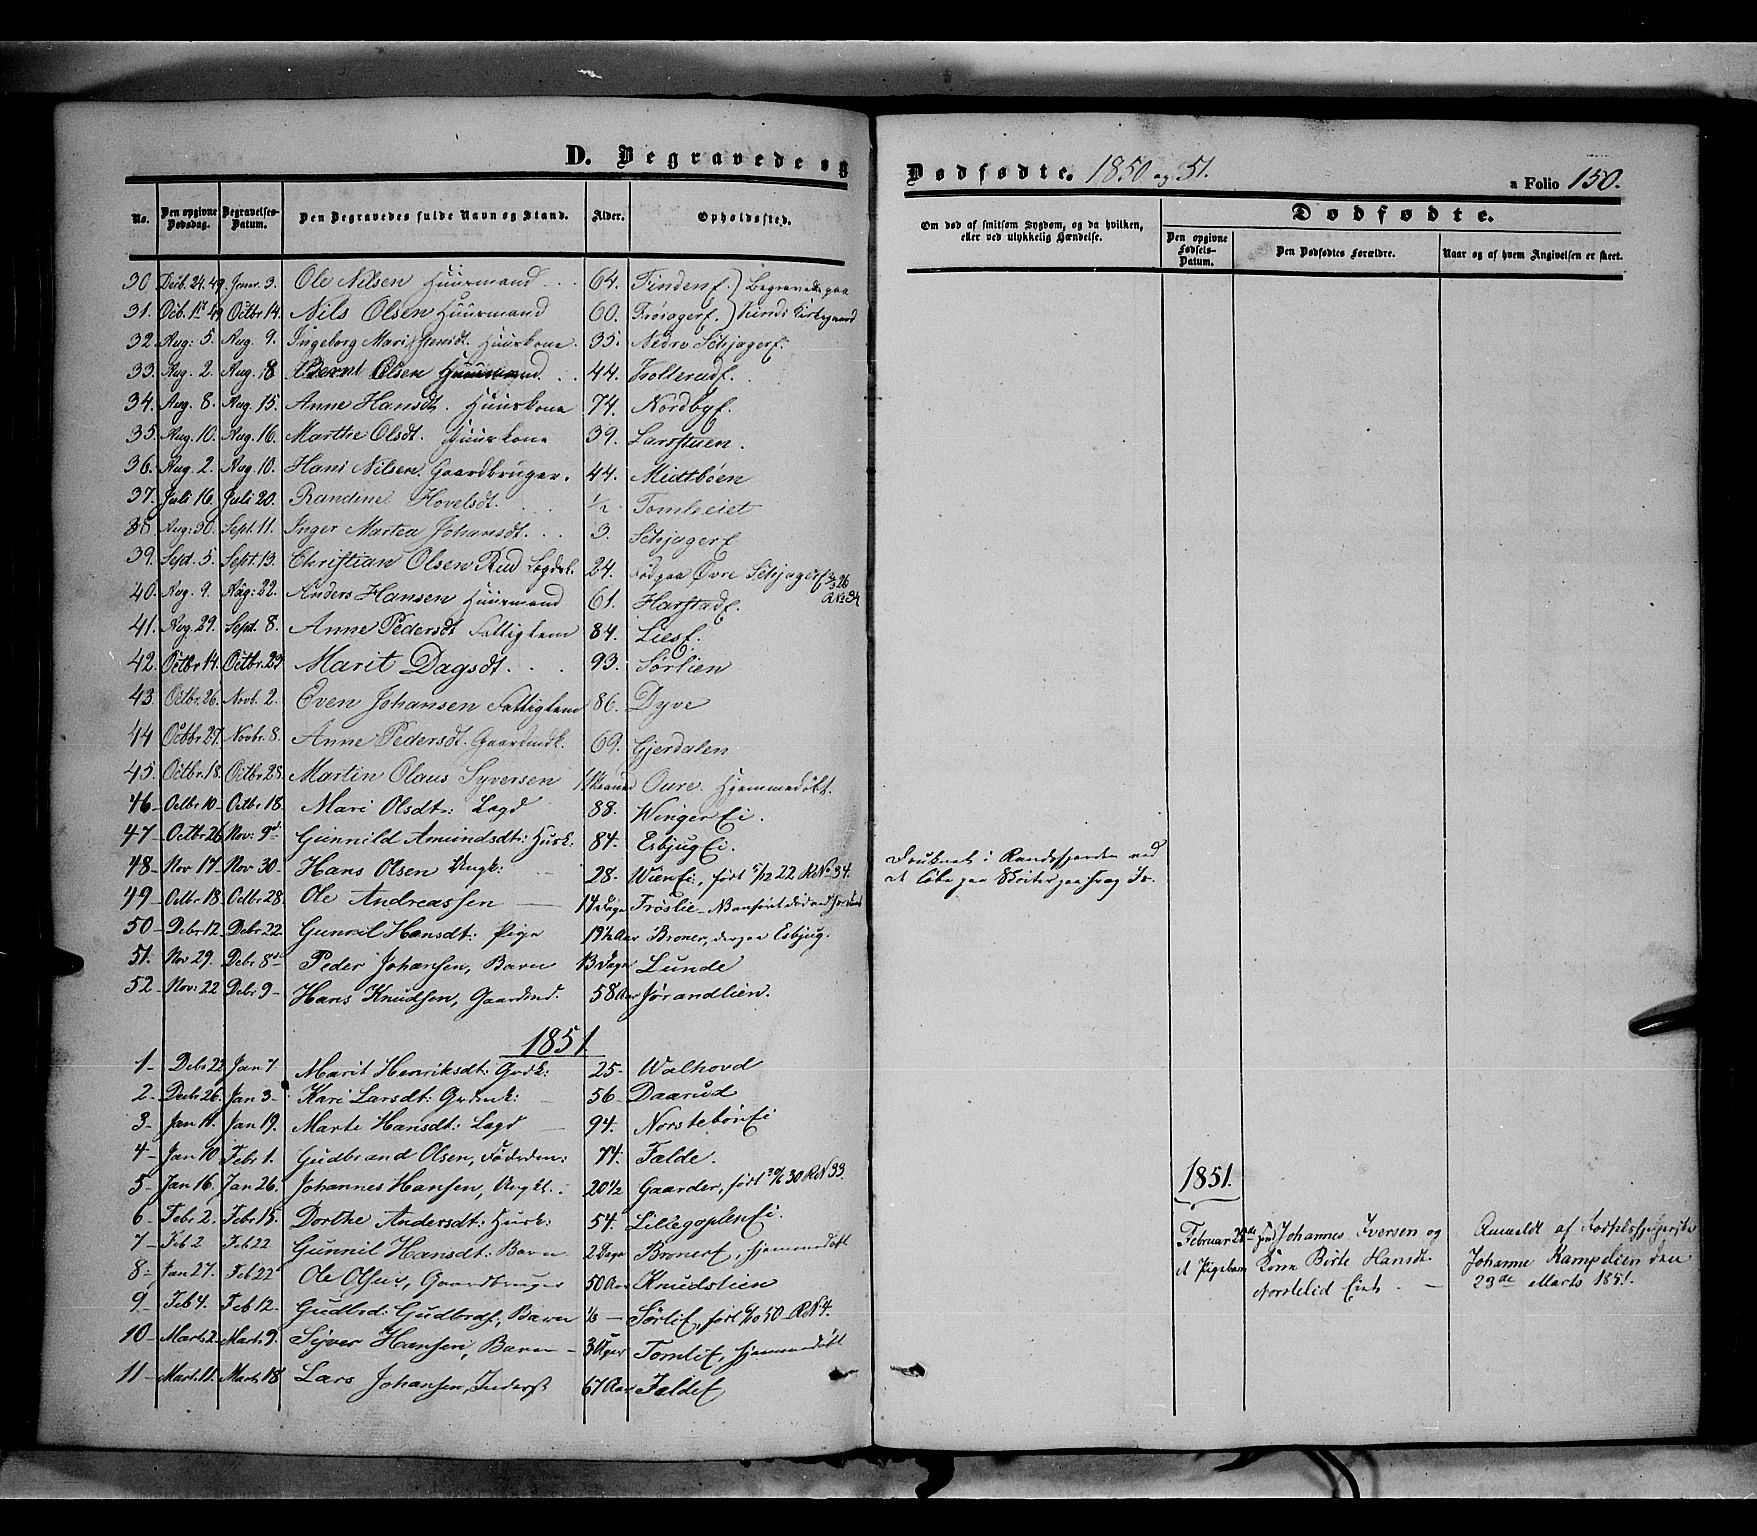 D. Begravede og
Dødfødte. 1850 og 51.
a Folio 150.
No. Den opgivne Dødsdag. Begravelses-Datum. Den Begravedes fulde Navn og Stand. Alder. Opholdssted.
Om død af smitsom Sygdom, og da hvilken, eller ved ulykkelig Hændelse.
Dødfødte.
Den opgivne Fødsels-Datum. Den Dødfødtes Forældre. Naar og af hvem Angivelsen er skeet.
30 Decb. 24. 49. Janr. 3. Ole Nilsen Huusmand 64. Tindenf. Begravede paa
31. Octbr. 14. Nils Olsen Huusmand 60. Frøiagerf.
32. Aug: 5. Aug. 9. Ingeborg Mari Huuskone. 35. Nedre Schjagerf.
33. Aug. 2. Aug. 18 Bernt Olsen Huusmand 44. Trollerudf.
34. Aug. 8. Aug. 15. Anne Hansdt. Huuskone 74. Nordbyf.
35. Aug. 10. Aug. 16. Marthe Olsdt. Huuskone 39. Larsstuen.
36. Aug. 2. Aug. 10. Hans Nilsen Gaardbruger. 44. Midtbøen
37. Juli 16. Juli 20. Randine Hovelsdt. ½. Tomleeiet
38 Aug: 30. Sept. 11. Inger Martea Johansdt. 3. Schjagerf
39. Sept. 5. Sept. 13. Christian Olsen Rud Lægdsl. 24. Født paa Øvre Schjagerf
40. Aug. 9. Aug: 22. Anders Hansen Huusmand 61. Harstadf.
41. Aug. 29. Sept. 8. Anne Pedersdt Fattiglem 84. Liesf.
42. Octbr. 14. Octbr. 29 Marit Dagsdt. 93. Sørlien
43. Octbr. 26. Novb. 2. Even Johansen Fattiglem 86. Dyve
44 Octbr. 27. Novbr. 8. Anne Pedersdt. Gaardmk. 69. Gjerdalen
45. Octbr. 18. Octbr. 28. Martin Olaus Syversen 1 Maaned Oure. Hjemmedøbt.
46- Octbr 10- Octbr 18. Mari Olsdt: Lægd 88. Winger Ei.
47- Octbr 26 Nov: 9d Gunnild Amundsdt: Husk. 84. Esbjug Ei.
48- Nov 17- Nov 30- Hans Olsen Ungk: 28. Wien Ei, født 5/12 22 R No 34.
Druknet i Randsfjorden ved
at løbe paa Skøiter paa svag Is.
49- Octbr 18 Octbr 28. Ole Andreassen 14 Dage Frøslie
50- Debr 12 Debr 22 Gunnil Hansdt: Pige 19½ Aar Broner, der paa Esbjug.
51. Nov 29. Debr 8d Peder Johansen, Barn 13 Dage Lunde
52- Nov: 22 Debr 9- Hans Knudsen, Gaardmd. 58 Aar Jørandlien.
1851.
1- Debr 22 Jan 7 Marit Henriksdt: Grdk: 25- Walhovd
2- Decbr 26. Jan 3- Kari Larsdt: Grdmk: 56- Daarud
3- Jan 11. Jan 19. Marte Hansdt: Lægd 94. Norstebøn Ei
4- Jan 10 Febr 1. Gudbrand Olsen, Føderdm: 74. Falde.
5. Jan 16. Jan 26. Johannes Hansen, Ungk. 20½ Gaarder, født 30 R No 33
6- Febr 2. Febr 15. Dorthe Andersdt: Husk: 54. Lillegoplen Ei.
7- Feb 2 Feb 22 Gunnil Hansdt: Barn 2 Dage Bronerf, hjemmedøbt
8- Jan 27. Feb 22 Ole Olsen, Gaardbruger 50 Aar Knudslien
9- Feb 4. Feb 12. Gudbrd: Gudbrds, Barn Sørlif, født 50 R No 4.
10- Marts 2 Marts 9. Syver Hansen, Barn 3 Uger Tomlif, hjemmedøbt
11- Marts 11. Marts 18 Lars Johansen, Inderst 67 Aar Faldef
1851.
Februar 28de Johannes Iversen og
et Pigebarn Kone Birte Hansdt.
Norslelid Eiet.
Anmeldt af Fødselshjelperske
Johanne Kampelien den
23de Marts 1851.